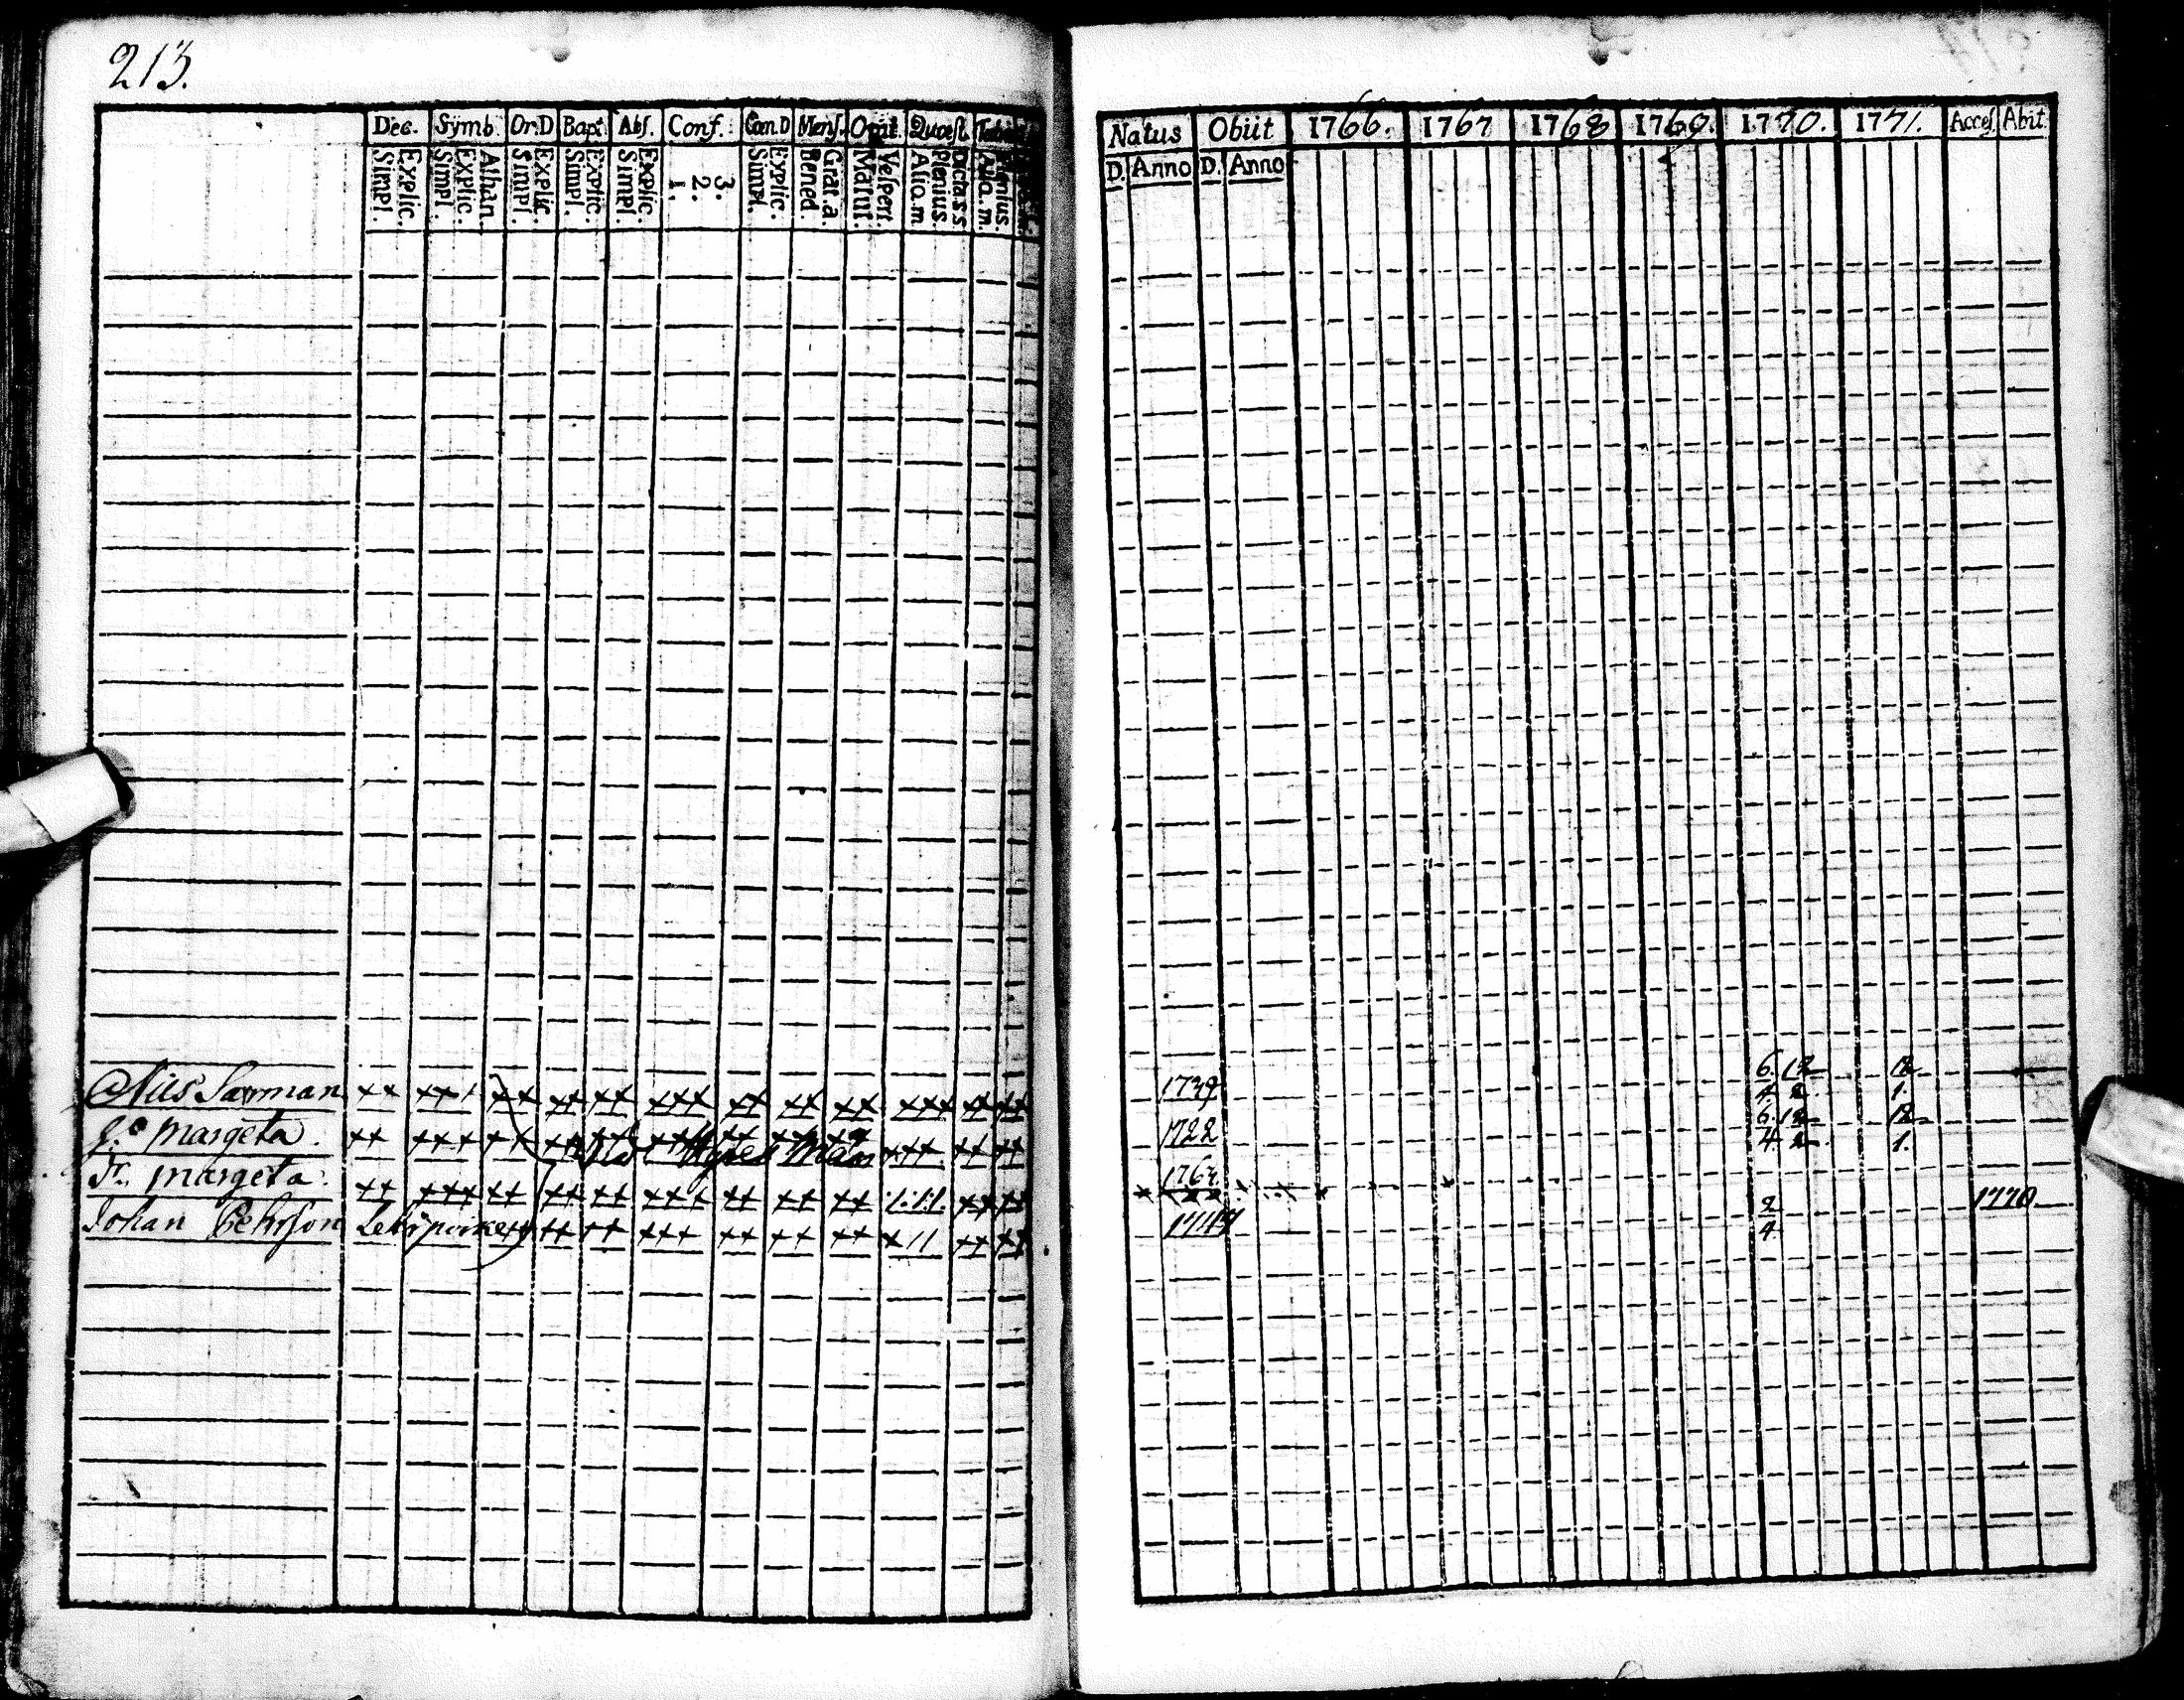 213.
Dec. Symb. Or.D Bapt. Abs. Conf. Cœn.D Mens. Opit. Quæst.
Explic. Simpl. Athan. Explic. Simpl. Explic. Simpl. Explic. Simpl. Explic. Simpl. 3. 2. 1. Explic. Simpl. Grat.a Bened. Vespert. Matut. Dicta.s.s Plenius. Alio.m Plenius. Alia.m.
Nils Sarman ++ +++ ++ ++ ++ +++ ++ ++ ++ +++ ++ ++
H:o Margeta. ++ +++ ++ ++ +++ ++ ++
Dr. Margeta. ++ +++ ++ ++ ++ +++ ++ ++ ++ ++ ++
Johan Pehrsson ++ ++ +++ ++ ++ ++ +11 ++ ++
Natus Obiit 1766. 1767 1768 1769. 1770. 1771. Acces. Abit.
D. Anno D. Anno
6. 12 12
4. 2. 1.
1722 6. 12 12
4. 2. 1.
1764
2 1770
4